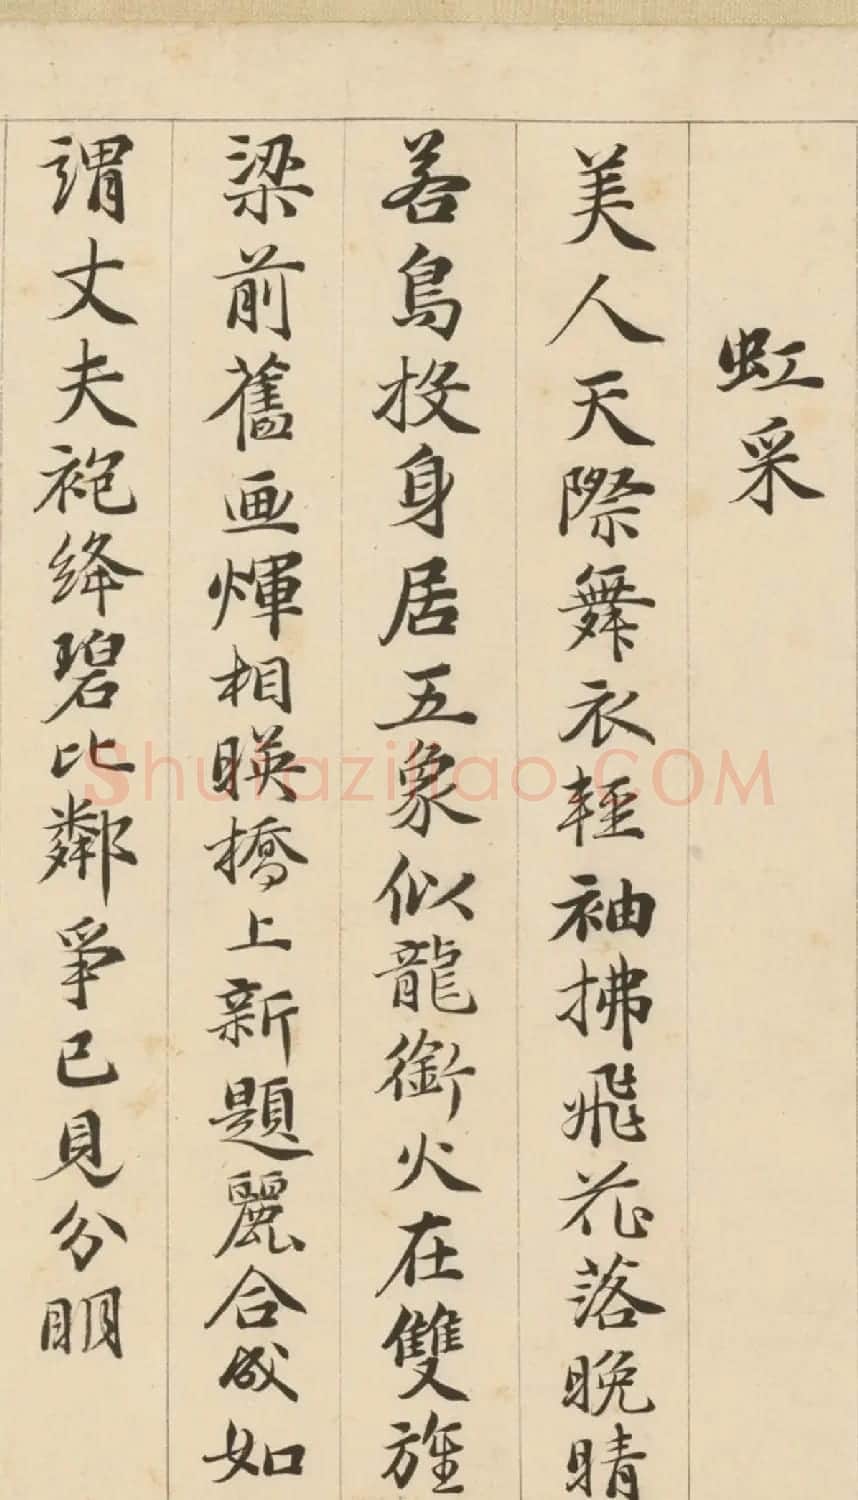 虹采
美人天際舞衣輕袖拂飛花落晚晴
若鳥投身居五象似龍銜火在雙旌
梁前舊画煇相暎橋上新題麗合成如
謂丈夫袍絳碧比鄰爭已見分明
Shufaziliao.COM